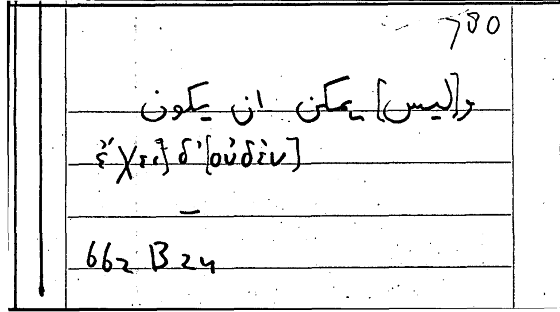 780
و[ليس] يمكن ان يكون
ἔχει] δ' [οὐδὲν]
—
662 B 24